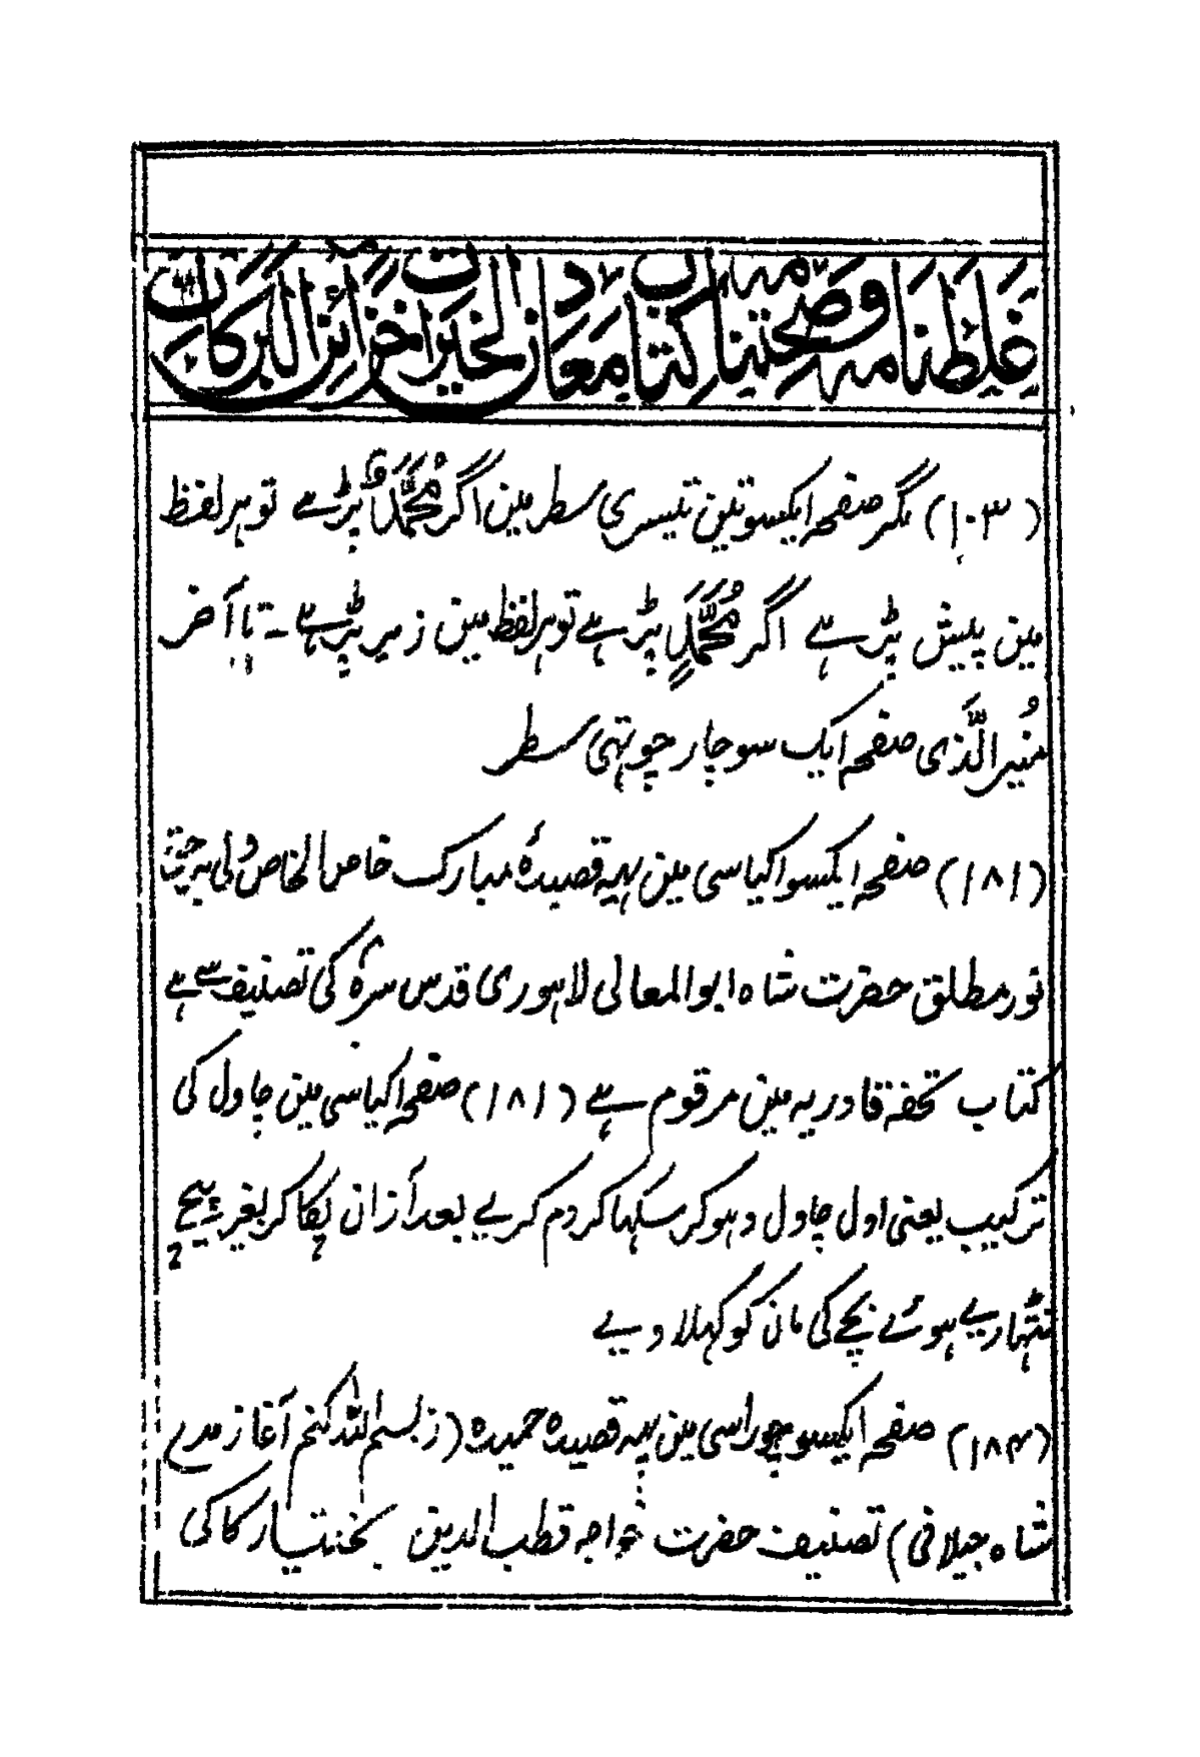 غلطنامہ وصحتنامہ کتاب معادن الخیرات خزائن البرکات
(۱۰۳) مگر صفحہ ایکسوتین تیسری سطر مین اگر مُحَمَّدٌ پڑہے تو ہر لفظ
مین پیش پڑہے اگر مُحَمَّدٍ پڑہے تو ہر لفظ مین زیر پڑہے ۔ تا آخر
مُنیر الَّذی صفحہ ایک سو چار چوتہی سطر
(۱۸۱) صفحہ ایکسو اکیاسی مین یہہ قصیدۂ مبارک خاص الخاص
نور مطلق حضرت شاہ ابوالمعالی لاہوری قدس سرہٗ کی تصنیف سے ہے
کتاب تحفہ قادریہ مین مرقوم ہے (۱۸۱) صفحہ اکیاسی مین چاول کی
ترکیب یعنی اول چاول دہوکر سکہا کر دم کرے بعد ازان پکا کر بغیر پیچ
نتہارے ہوئے بچے کی مان کو کہلا دیے
(۱۸۴) صفحہ ایکسو چوراسی مین یہہ قصیدہ حمیدہ (ز بسم اللہ کنم آغاز مدح
شاہ جیلانی) تصنیف حضرت خواجہ قطب الدین بختیار کاکی